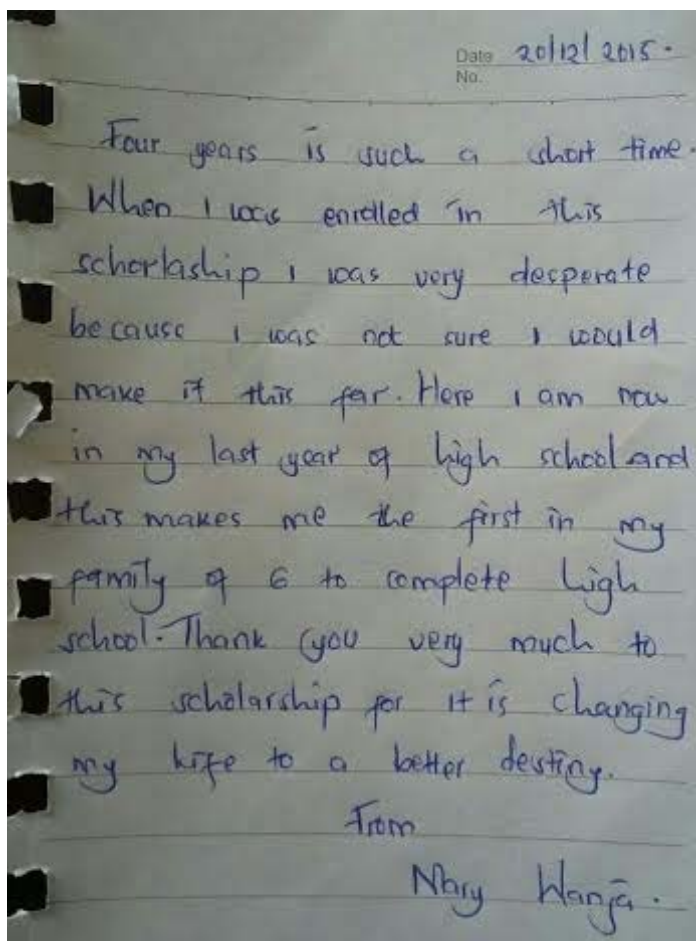 Date 20/12/2015.
No.
Four years is such a short time.
When I was enrolled in this
schorlaship I was very desperate
because I was not sure I would
make it this far. Here I am now
in my last year of high school and
this makes me the first in my
family of 6 to complete high
school. Thank you very much to
this scholarship for it is changing
my life to a better destiny.
From
Mary Wanja.